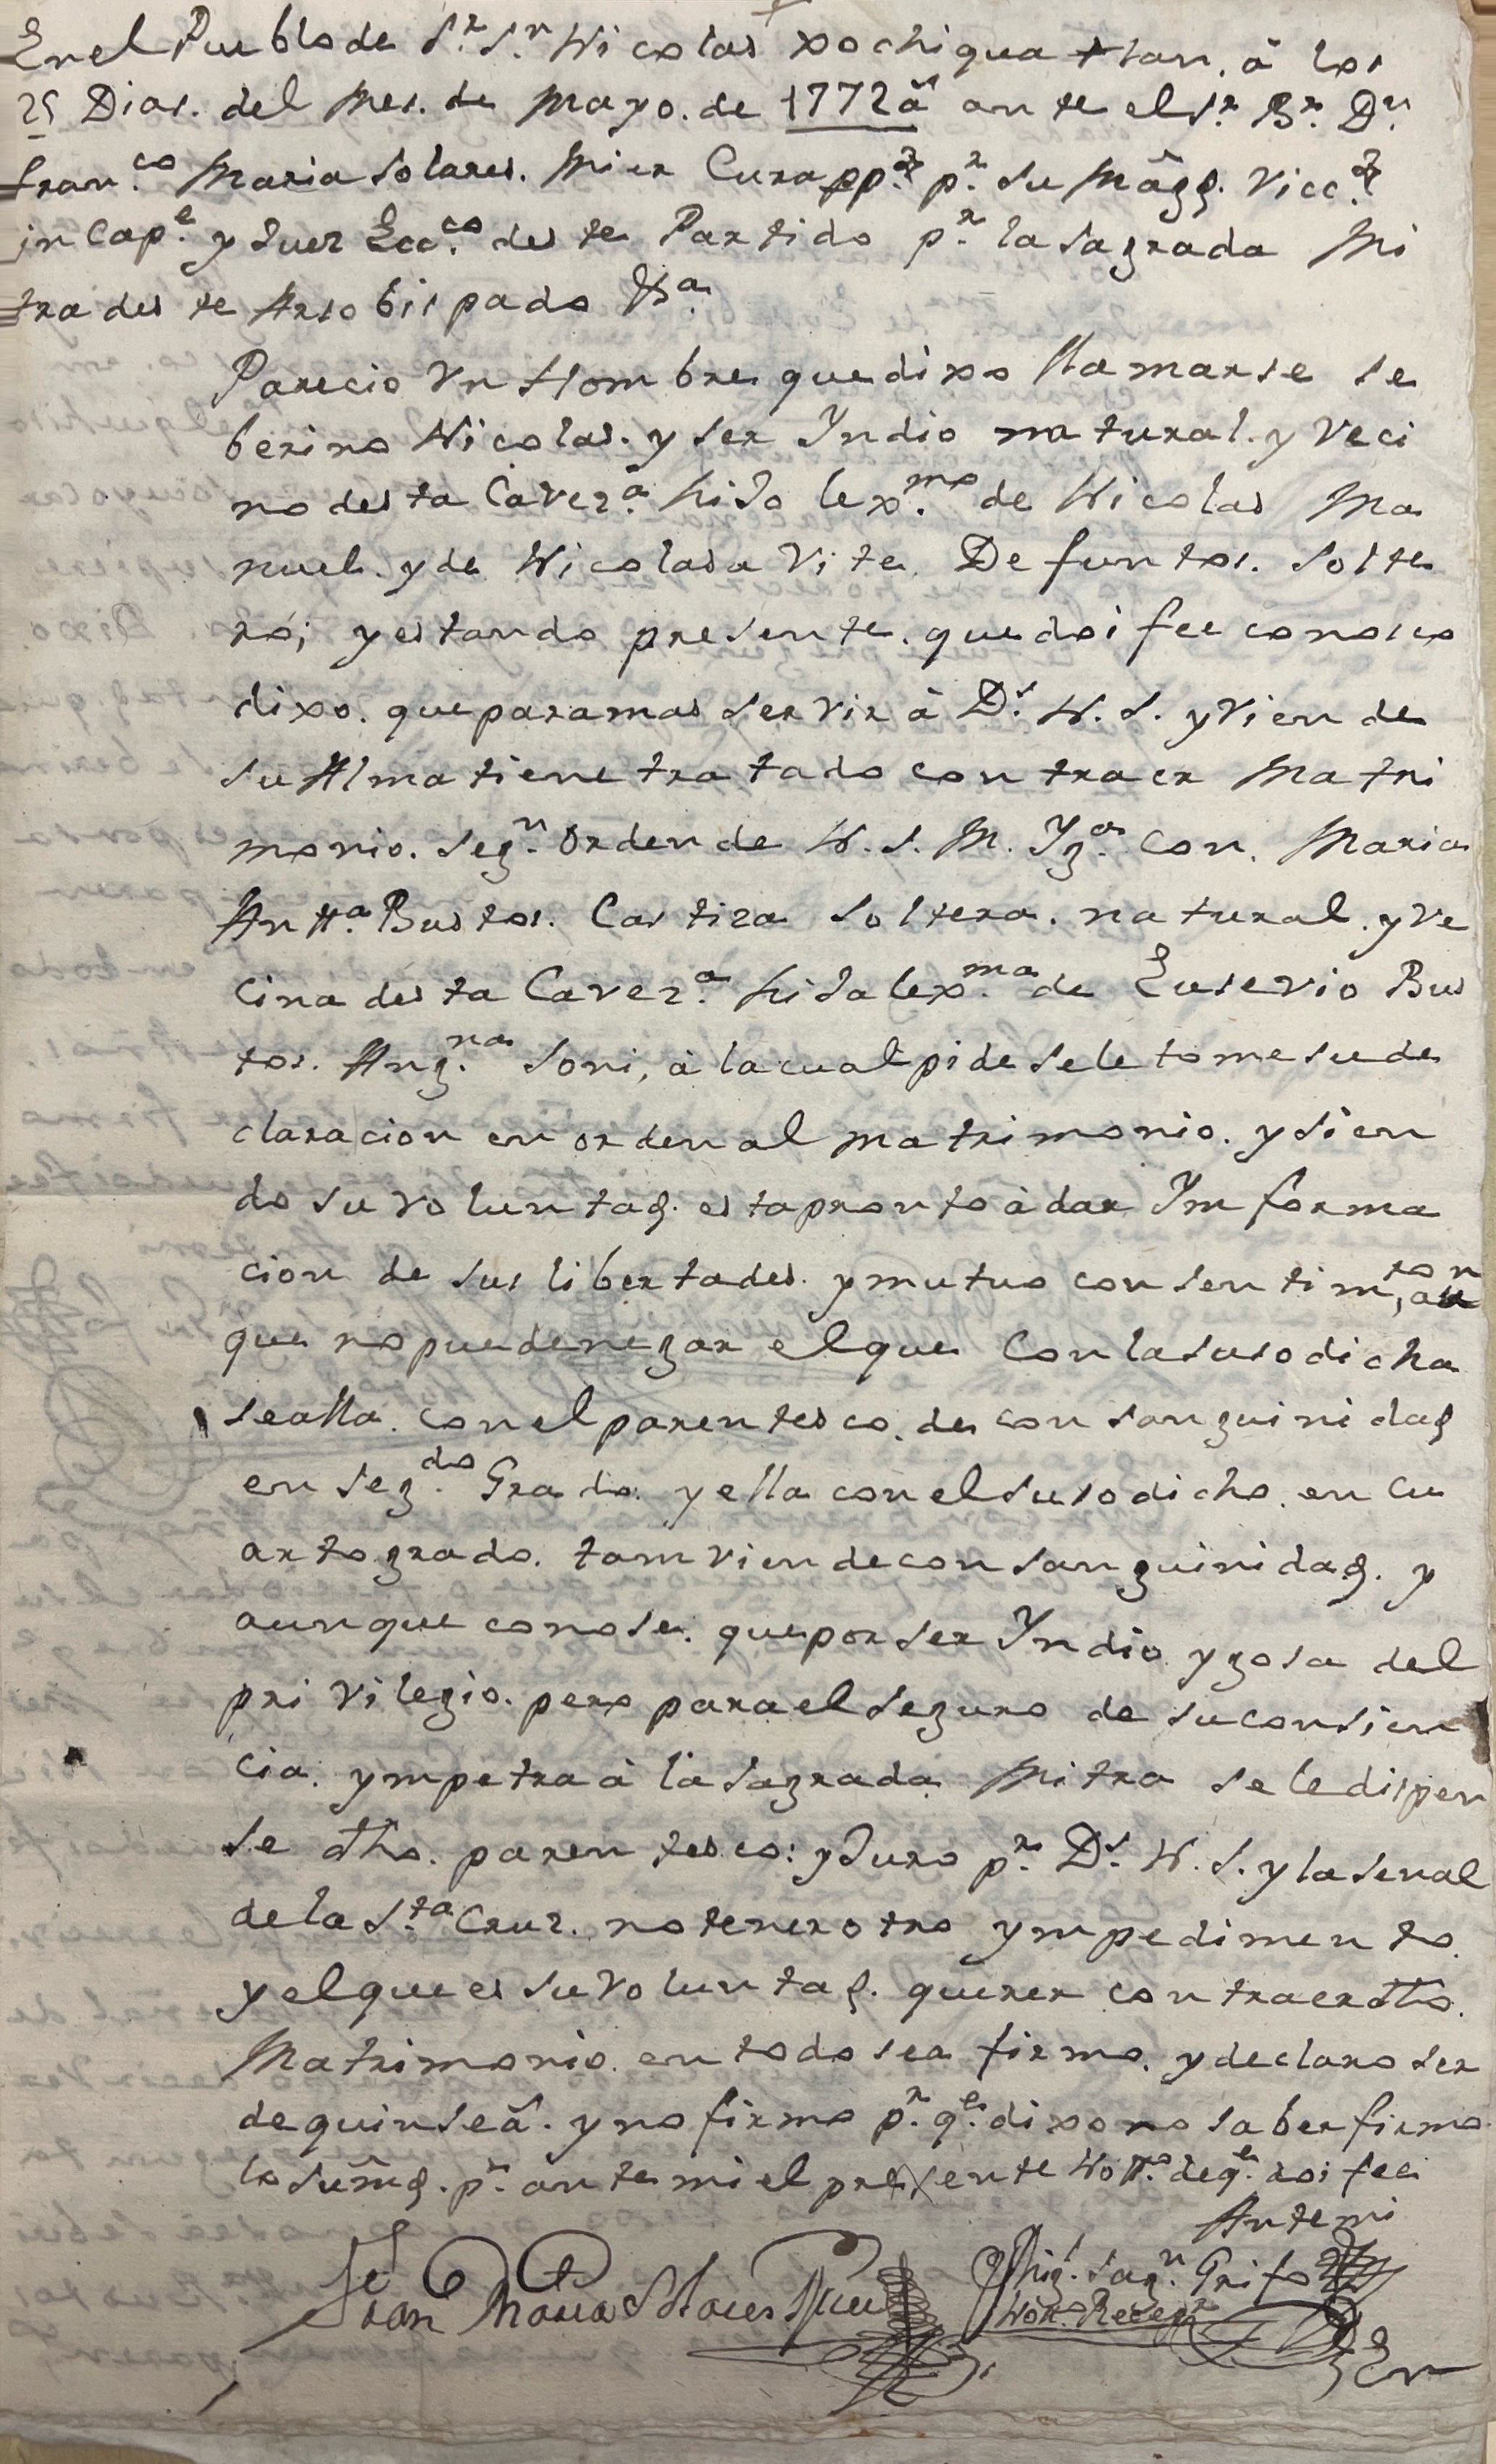 En el Pueblo de S.r S.n Nicolas xochiquatlan. â los
25 Dias. del Mes. de Mayo. de 1772 a.s ante el S.r B.r D.n
Fran.co Maria Solares. Mier Cura pp.o p.r su Magd. Vicc.o
in Cap.e y Juez Ecc.co des te Partido p.r la Sagrada Mi
tra des te Arsobispado &.a
Parecio Vn Hombre que dixo llamarse Se
berino Nicolas. y ser Yndio natural. y Veci
no desta Cavez.a hiJo lex.mo de Nicolas Ma
nuel. y de Nicolasa Vite. Defuntos. Solte
ro; y estando presente. que doi fee conosco
dixo. que para mas servir â D.s N. S. y Vien de
su Alma tiene tratado contraer Matri
monio. Seg.n Orden de N. S. M. Yg.a con. Maria
Antt.a Bustos. Castiza Soltera. natural. y Ve
cina desta Cavez.a hiJa lex.ma de Eusevio Bus
tos. Ang.na Soni, â la cual pide se le tome su de
claracion en orden al Matrimonio. y sien
do su voluntad. esta pronto â dar Ymforma
cion de sus libertades. y mutuo consentim.to, aun
que no puede negar el que Con la susodicha
sealla. con el parentesco. de consanguinidad
en Seg.do Grado. y ella con el susodicho. en Cu
arto grado. tamvien de consanguinidad. y
aunque conose. que por ser Yndio y gosa del
privilegio. pero para el seguro de su consien
cia. ympetra â la Sagrada Mitra se le dispen
se dho. parentesco: y Juro p.r D.s N. S. y la señal
de la S.ta Cruz. no tener otro ympedimento.
y el que es su voluntad. querer contraer dho.
Matrimonio. en todo sea firmo. y declaro ser
de quinse a.s y no firmo p.r q.e dixo no saber firmo
lo su md. p.r ante mi el presente Nott.o de q.e doi fee
Ante mi
Fran Maria Solares Mier
Mig.l Sag.n Grifo
Nott. Recep.r
En